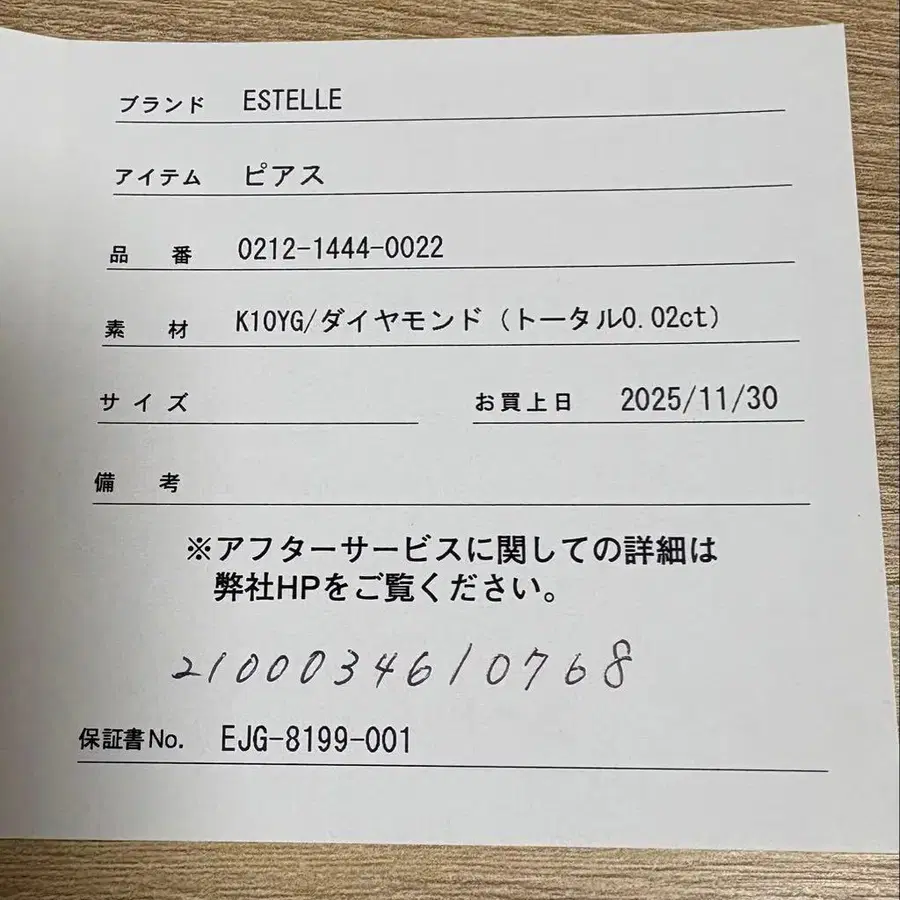 ブランド ESTELLE
アイテム ピアス
品番 0212-1444-0022
素材 K10YG/ダイヤモンド（トータル0.02ct）
サイズ お買上日 2025/11/30
備考
※アフターサービスに関しての詳細は
弊社HPをご覧ください。
2100034610768
保証書No. EJG-8199-001